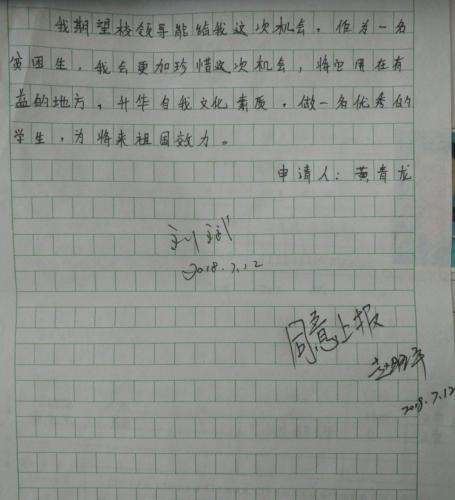 我期望校领导能给我这次机会，作为一名
贫困生，我会更加珍惜这次机会，将它用在有
益的地方，升华自我文化素质，做一名优秀的
学生，为将来祖国效力。
申请人：黄青龙
2018.7.12
同意上报
2018.7.12